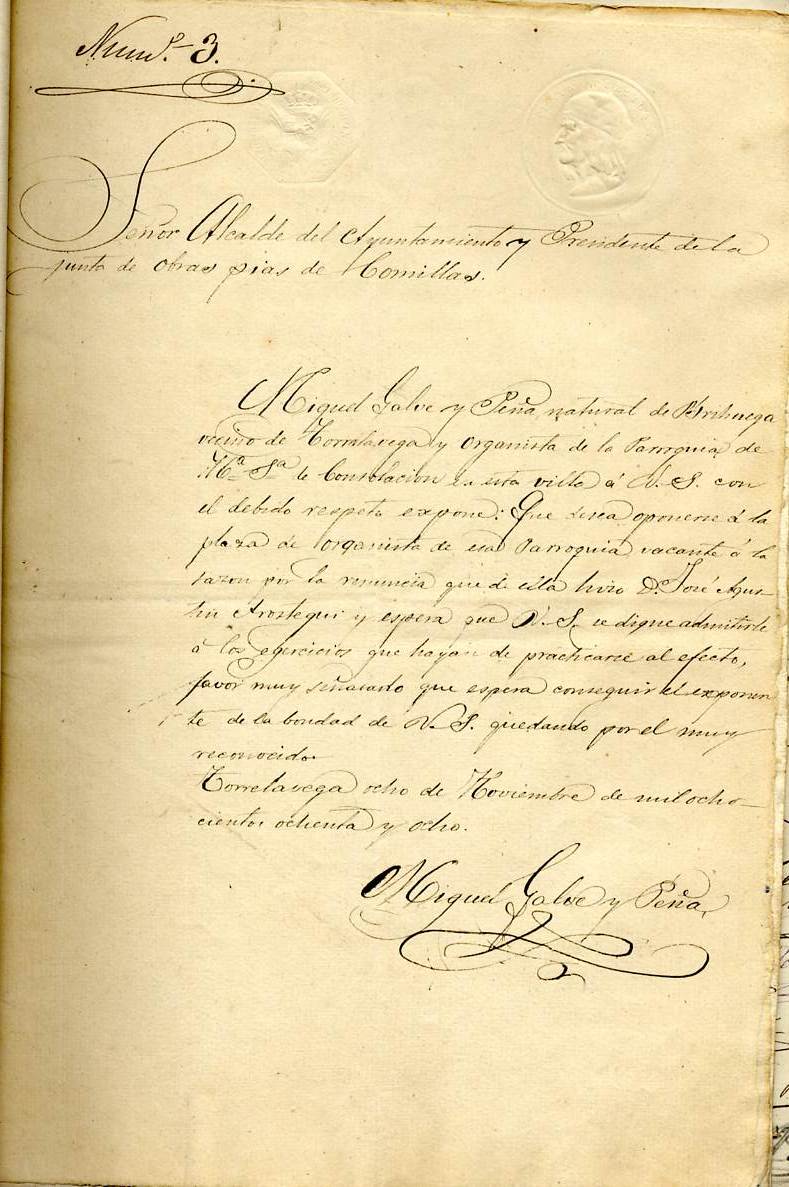 Num.º 3.
Señor Alcalde del Ayuntamiento y Presidente de la
junta de obras pias de Comillas.
Miguel Galve y Peña, natural de Brihuega
vecino de Torrelavega y organista de la Parroquia de
N.ª S.ª de Consolacion en esta villa á V. S. con
el debido respeto expone: Que desea oponerse á la
plaza de organista de esa Parroquia vacante á la
sazon por la renuncia que de ella hizo D. José Agus-
tin Arostegui y espera que V. S. se digne admitirle
á los egercicios que hayan de practicarse al efecto,
favor muy señalado que espera conseguir el exponen
te de la bondad de V. S. quedando por el muy
reconocido.
Torrelavega ocho de Noviembre de mil ocho-
cientos ochenta y ocho.
Miguel Galve y Peña,